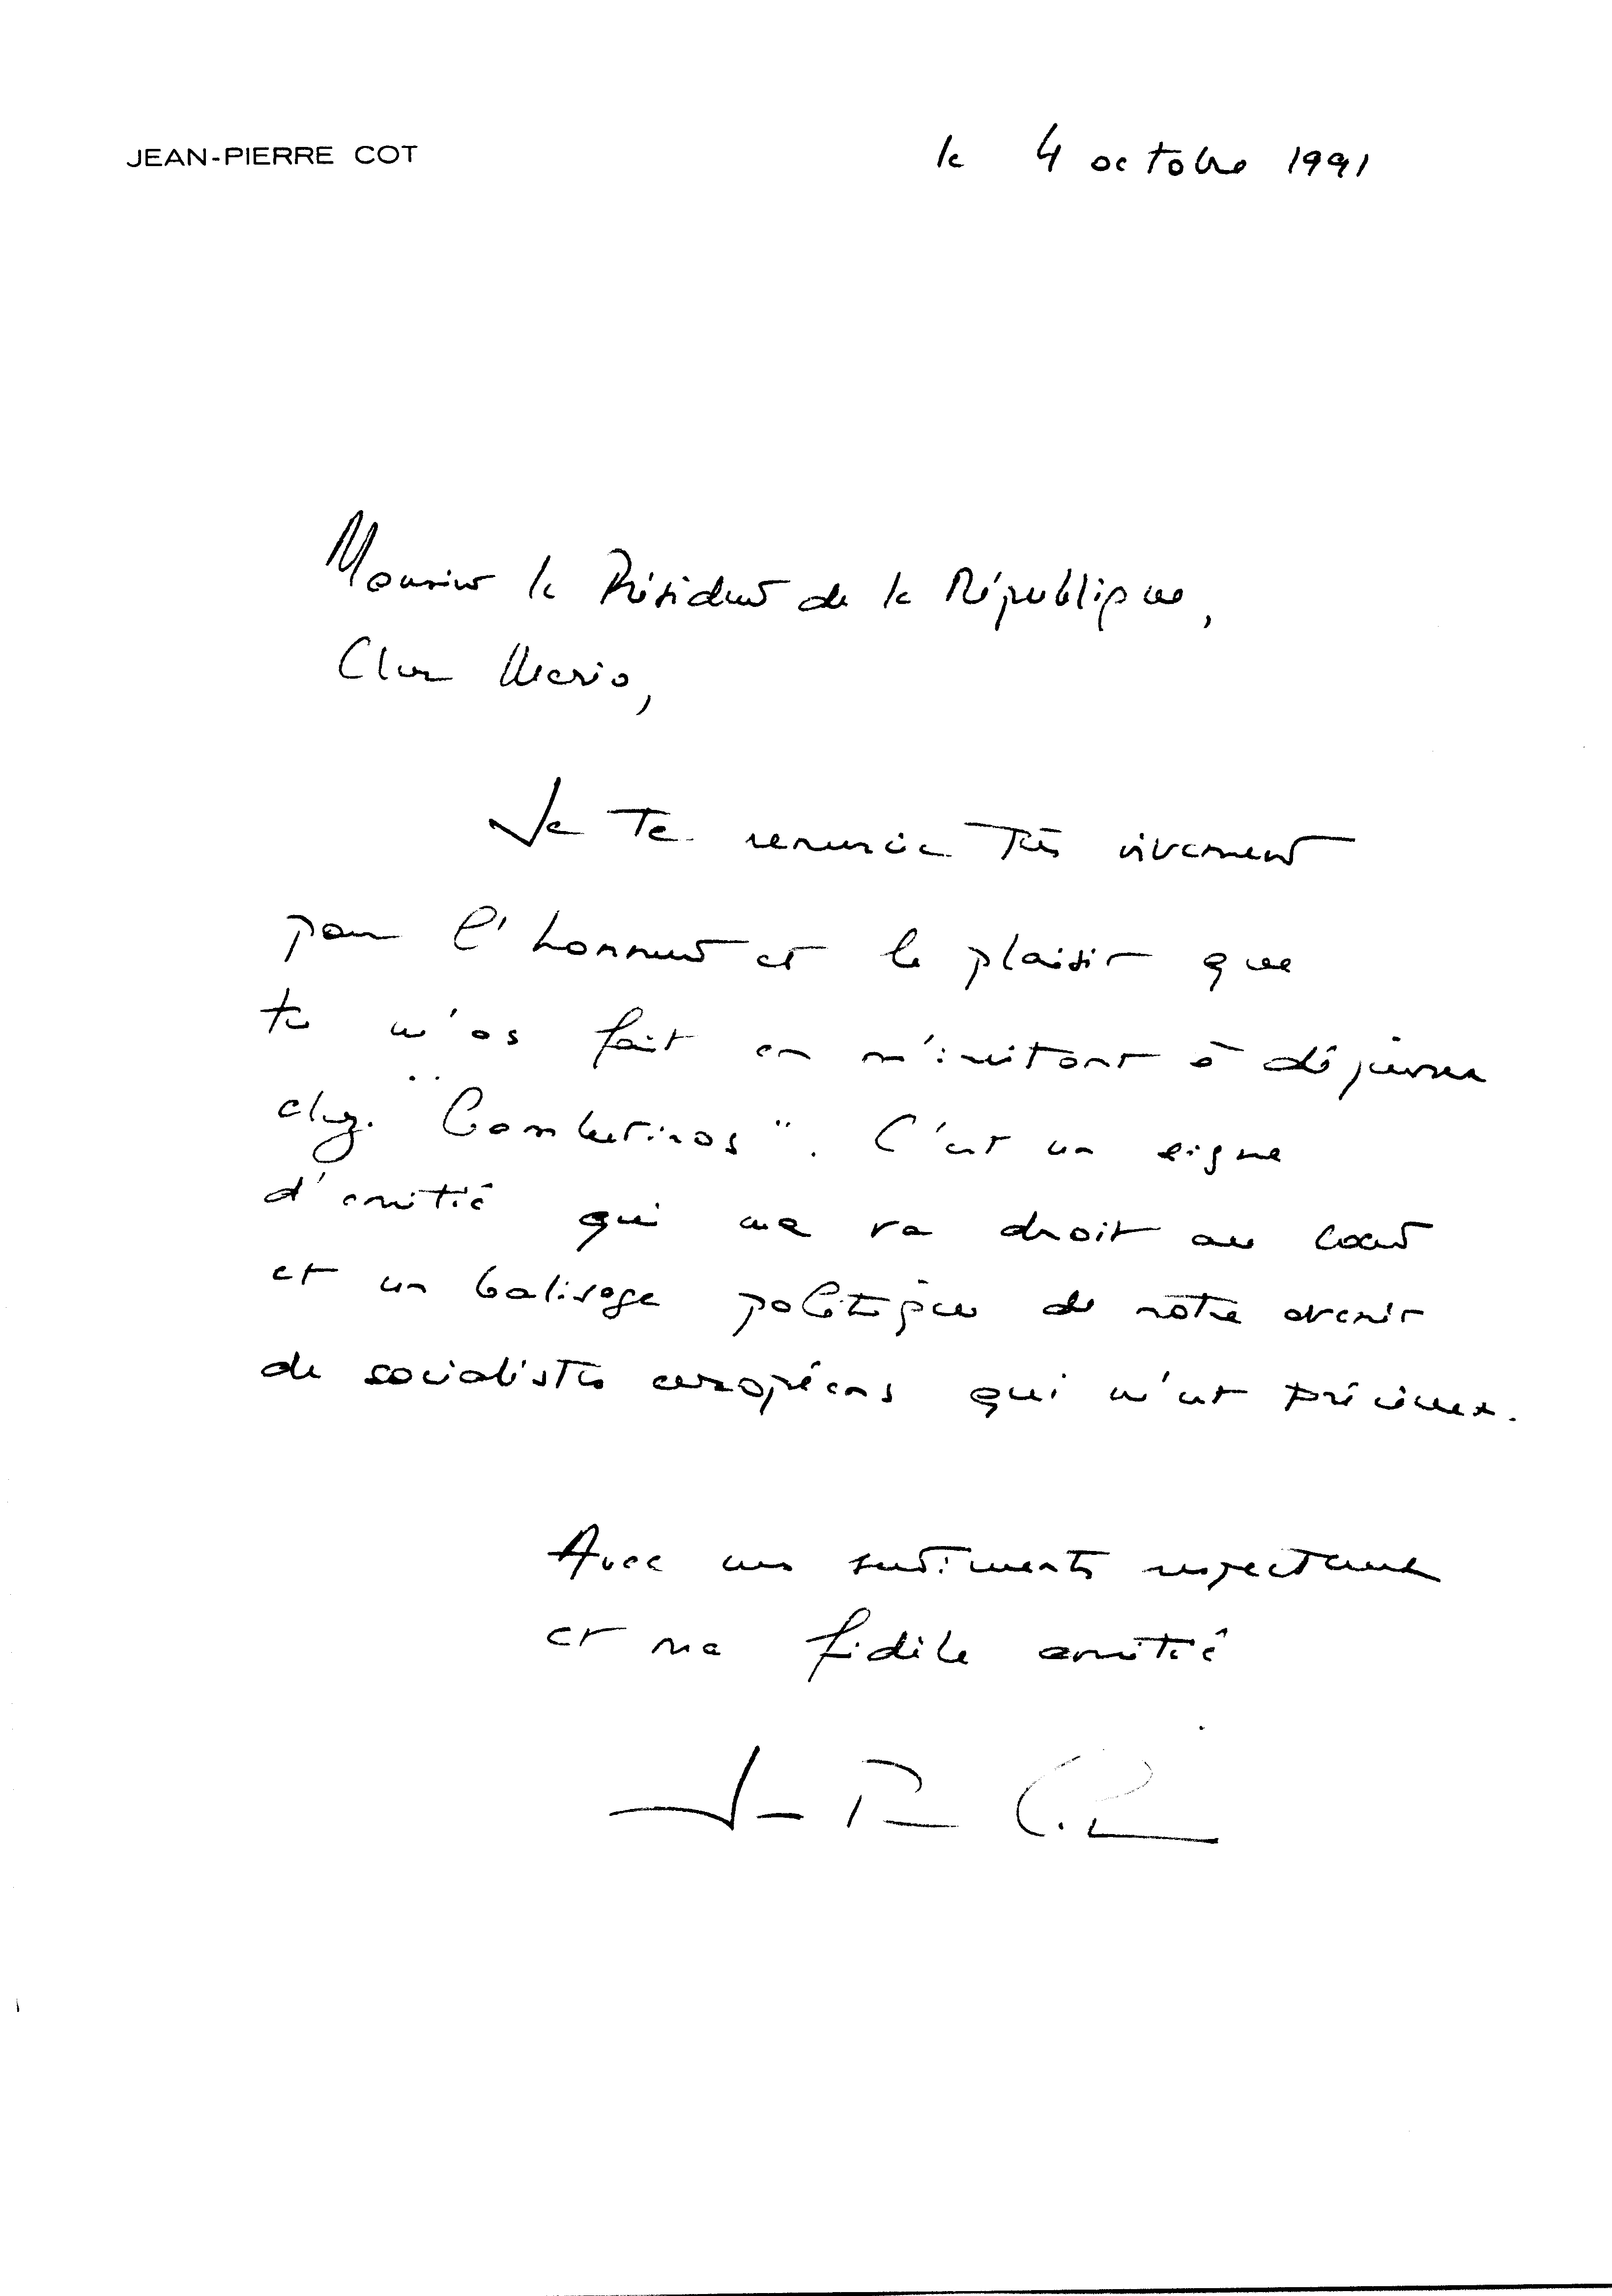 JEAN-PIERRE COT
le 4 octobre 1991
Monsieur le Président de la République,
Cher Mario,
Je te remercie très vivement
pour l'honneur et le plaisir que
tu m'as fait en m'invitant à déjeuner
chez "Gambrinos". C'est un signe
d'amitié qui me va droit au cœur
et un balisage politique de notre avenir
de socialistes européens qui m'est précieux.
Avec mes sentiments respectueux
et ma fidèle amitié